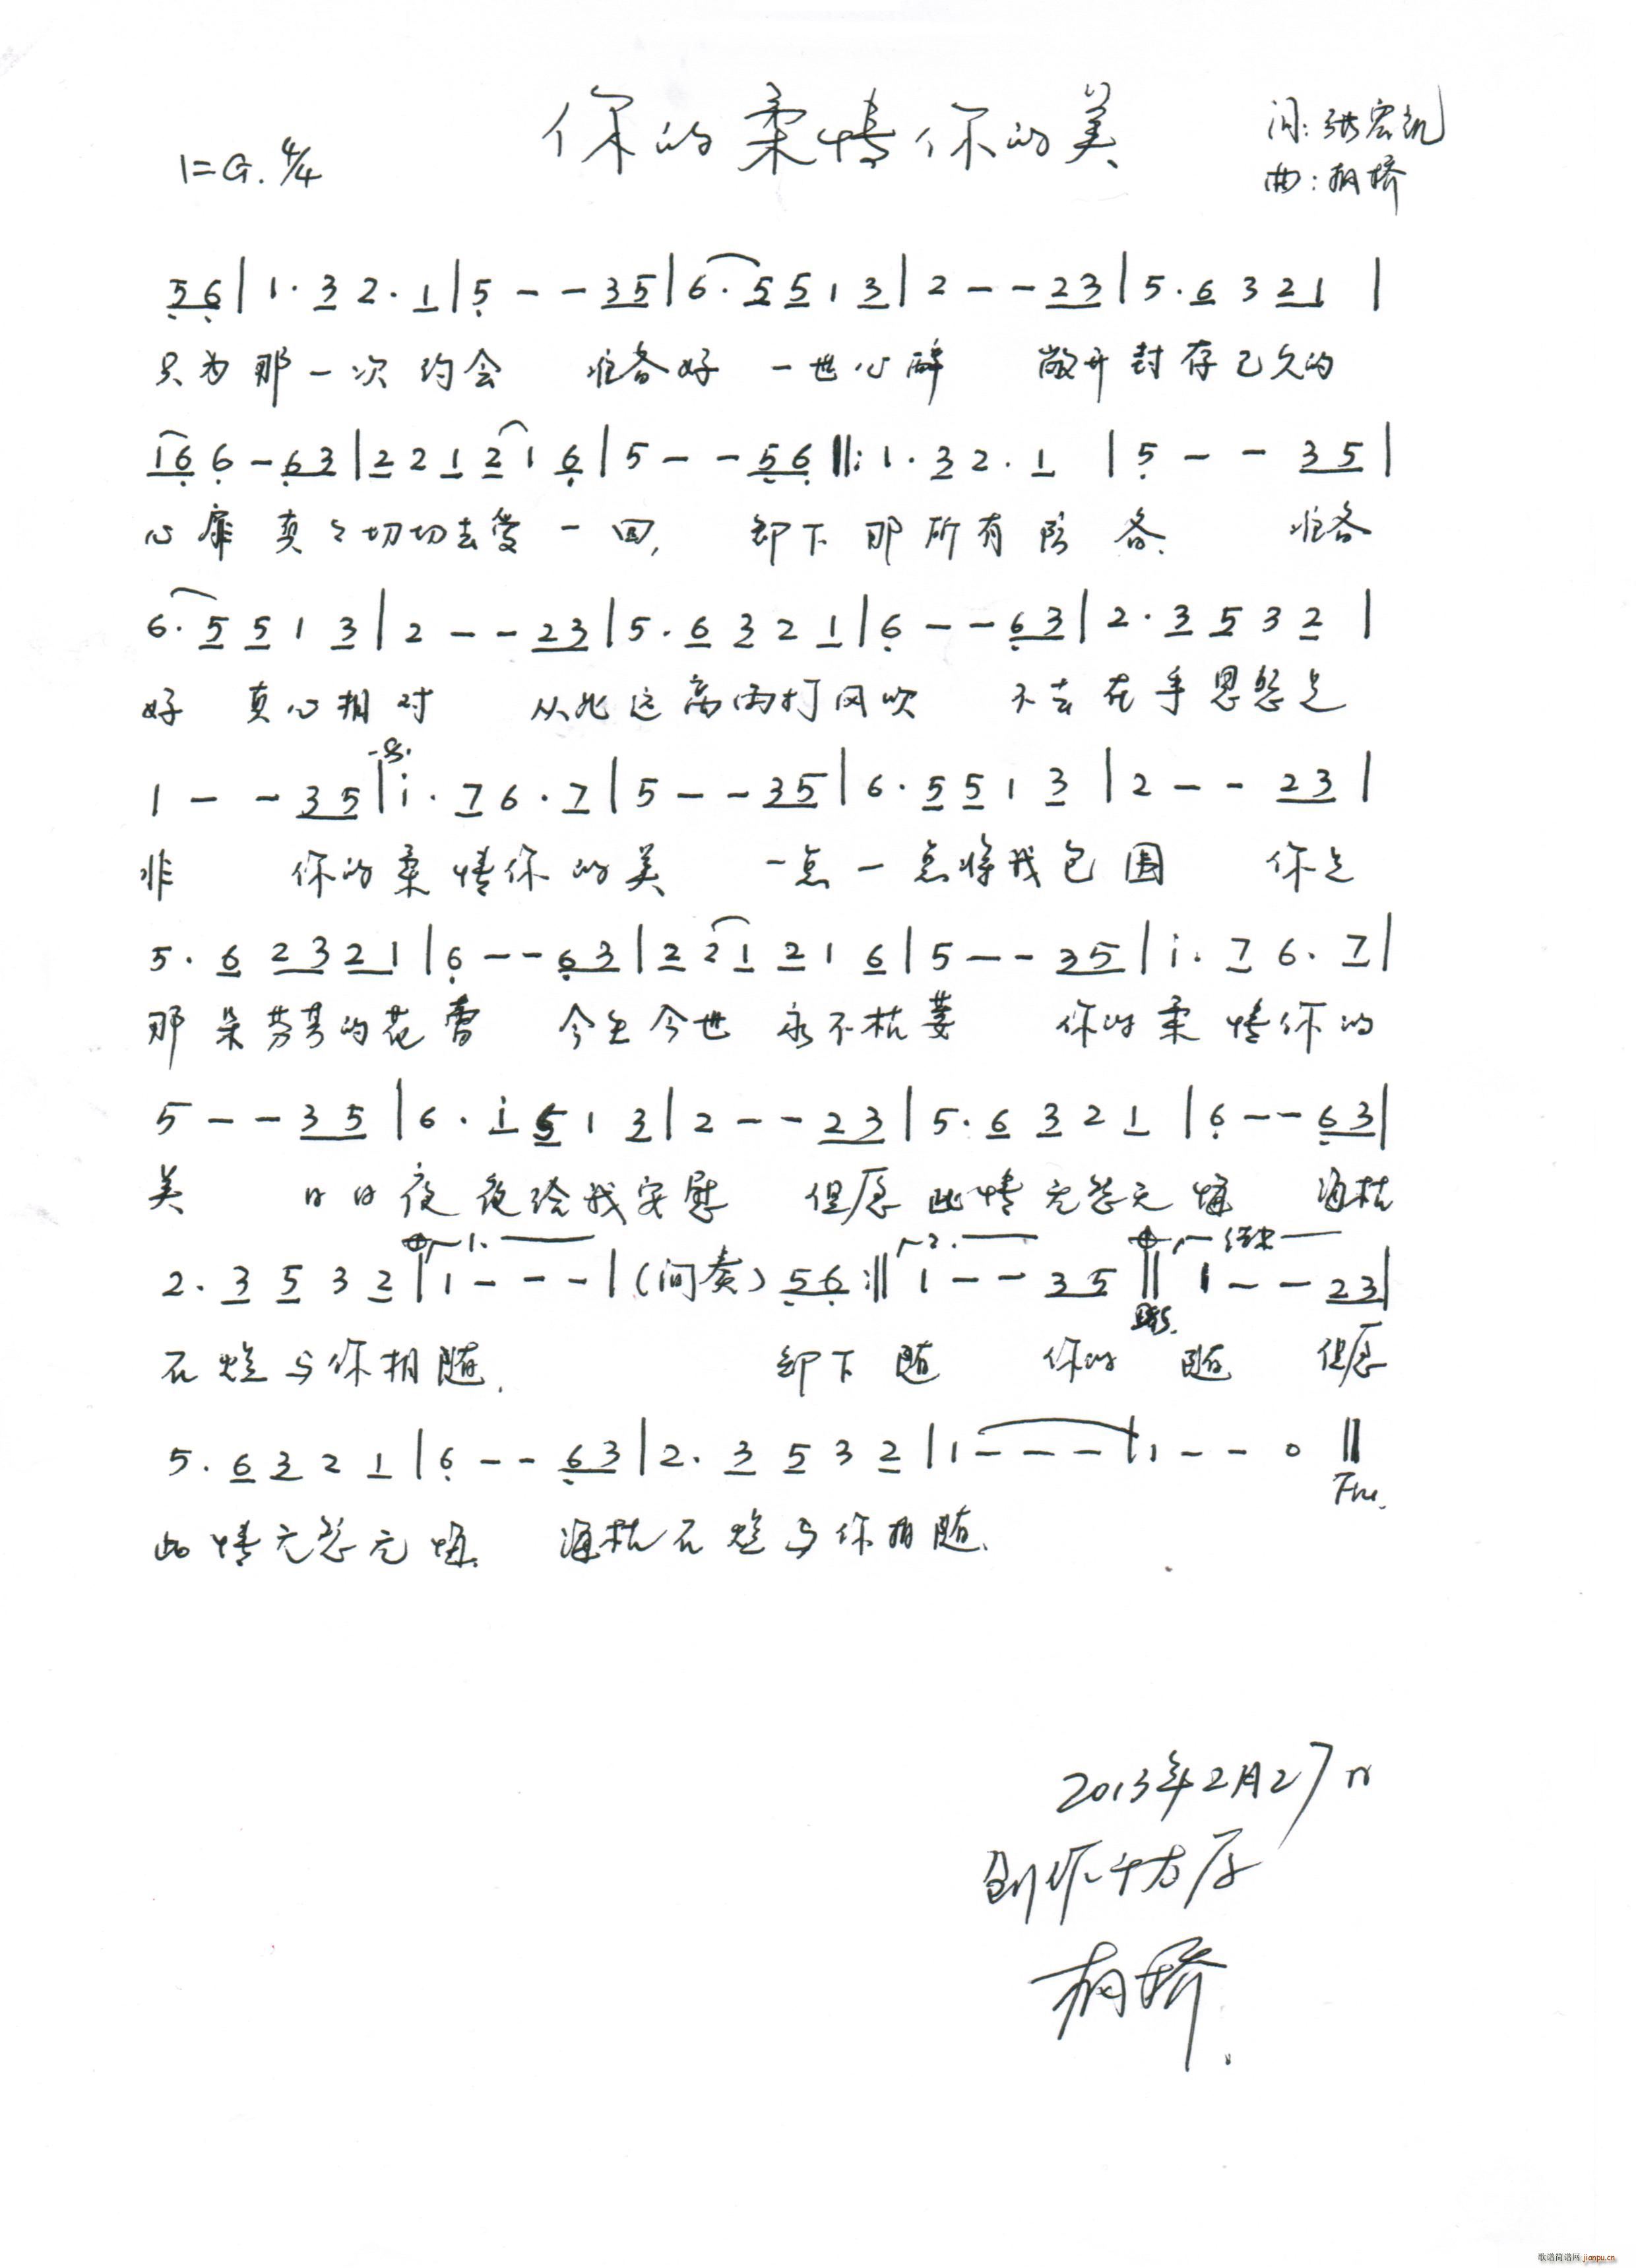 你的柔情你的美
1=G. 4/4
词:张宏凯
曲:柏桥
56 | 1·32·1 | 5--35 | 6·5513 | 2--23 | 5·6321 |
只为那一次约会 准备好一世心醉 敞开封存已久的
166-63 | 221216 | 5--56 ‖: 1·32·1 | 5--35 |
心扉真々切切去爱一回, 卸下那所有防备. 准备
6·5513 | 2--23 | 5·6321 | 6--63 | 2·3532 |
好真心相对 从此远离雨打风吹 不去在乎恩怨是
1--35 | i·76·7 | 5--35 | 6·5513 | 2--23 |
非 你的柔情你的美 一点一点将我包围 你是
5·62321 | 6--63 | 221216 | 5--35 | i·76·7 |
那朵芬芳的花蕾 今生今世永不枯萎 你的柔情你的
5--35 | 6·i513 | 2--23 | 5·6321 | 6--63 |
美 日日夜夜给我安慰 但愿此情无怨无悔 海枯
1. 2. 结束
2·3532 | 1--- | (间奏) 56 :‖ 1--35 ‖ 1--23 |
D.S.
石烂与你相随. 卸下随 你的 随 但愿
5·6321 | 6--63 | 2·3532 | 1--- | 1--0 ‖
Fine.
此情无怨无悔. 海枯石烂与你相随.
2013年2月27日
创作
柏桥.
歌谱简谱网 jianpu.cn